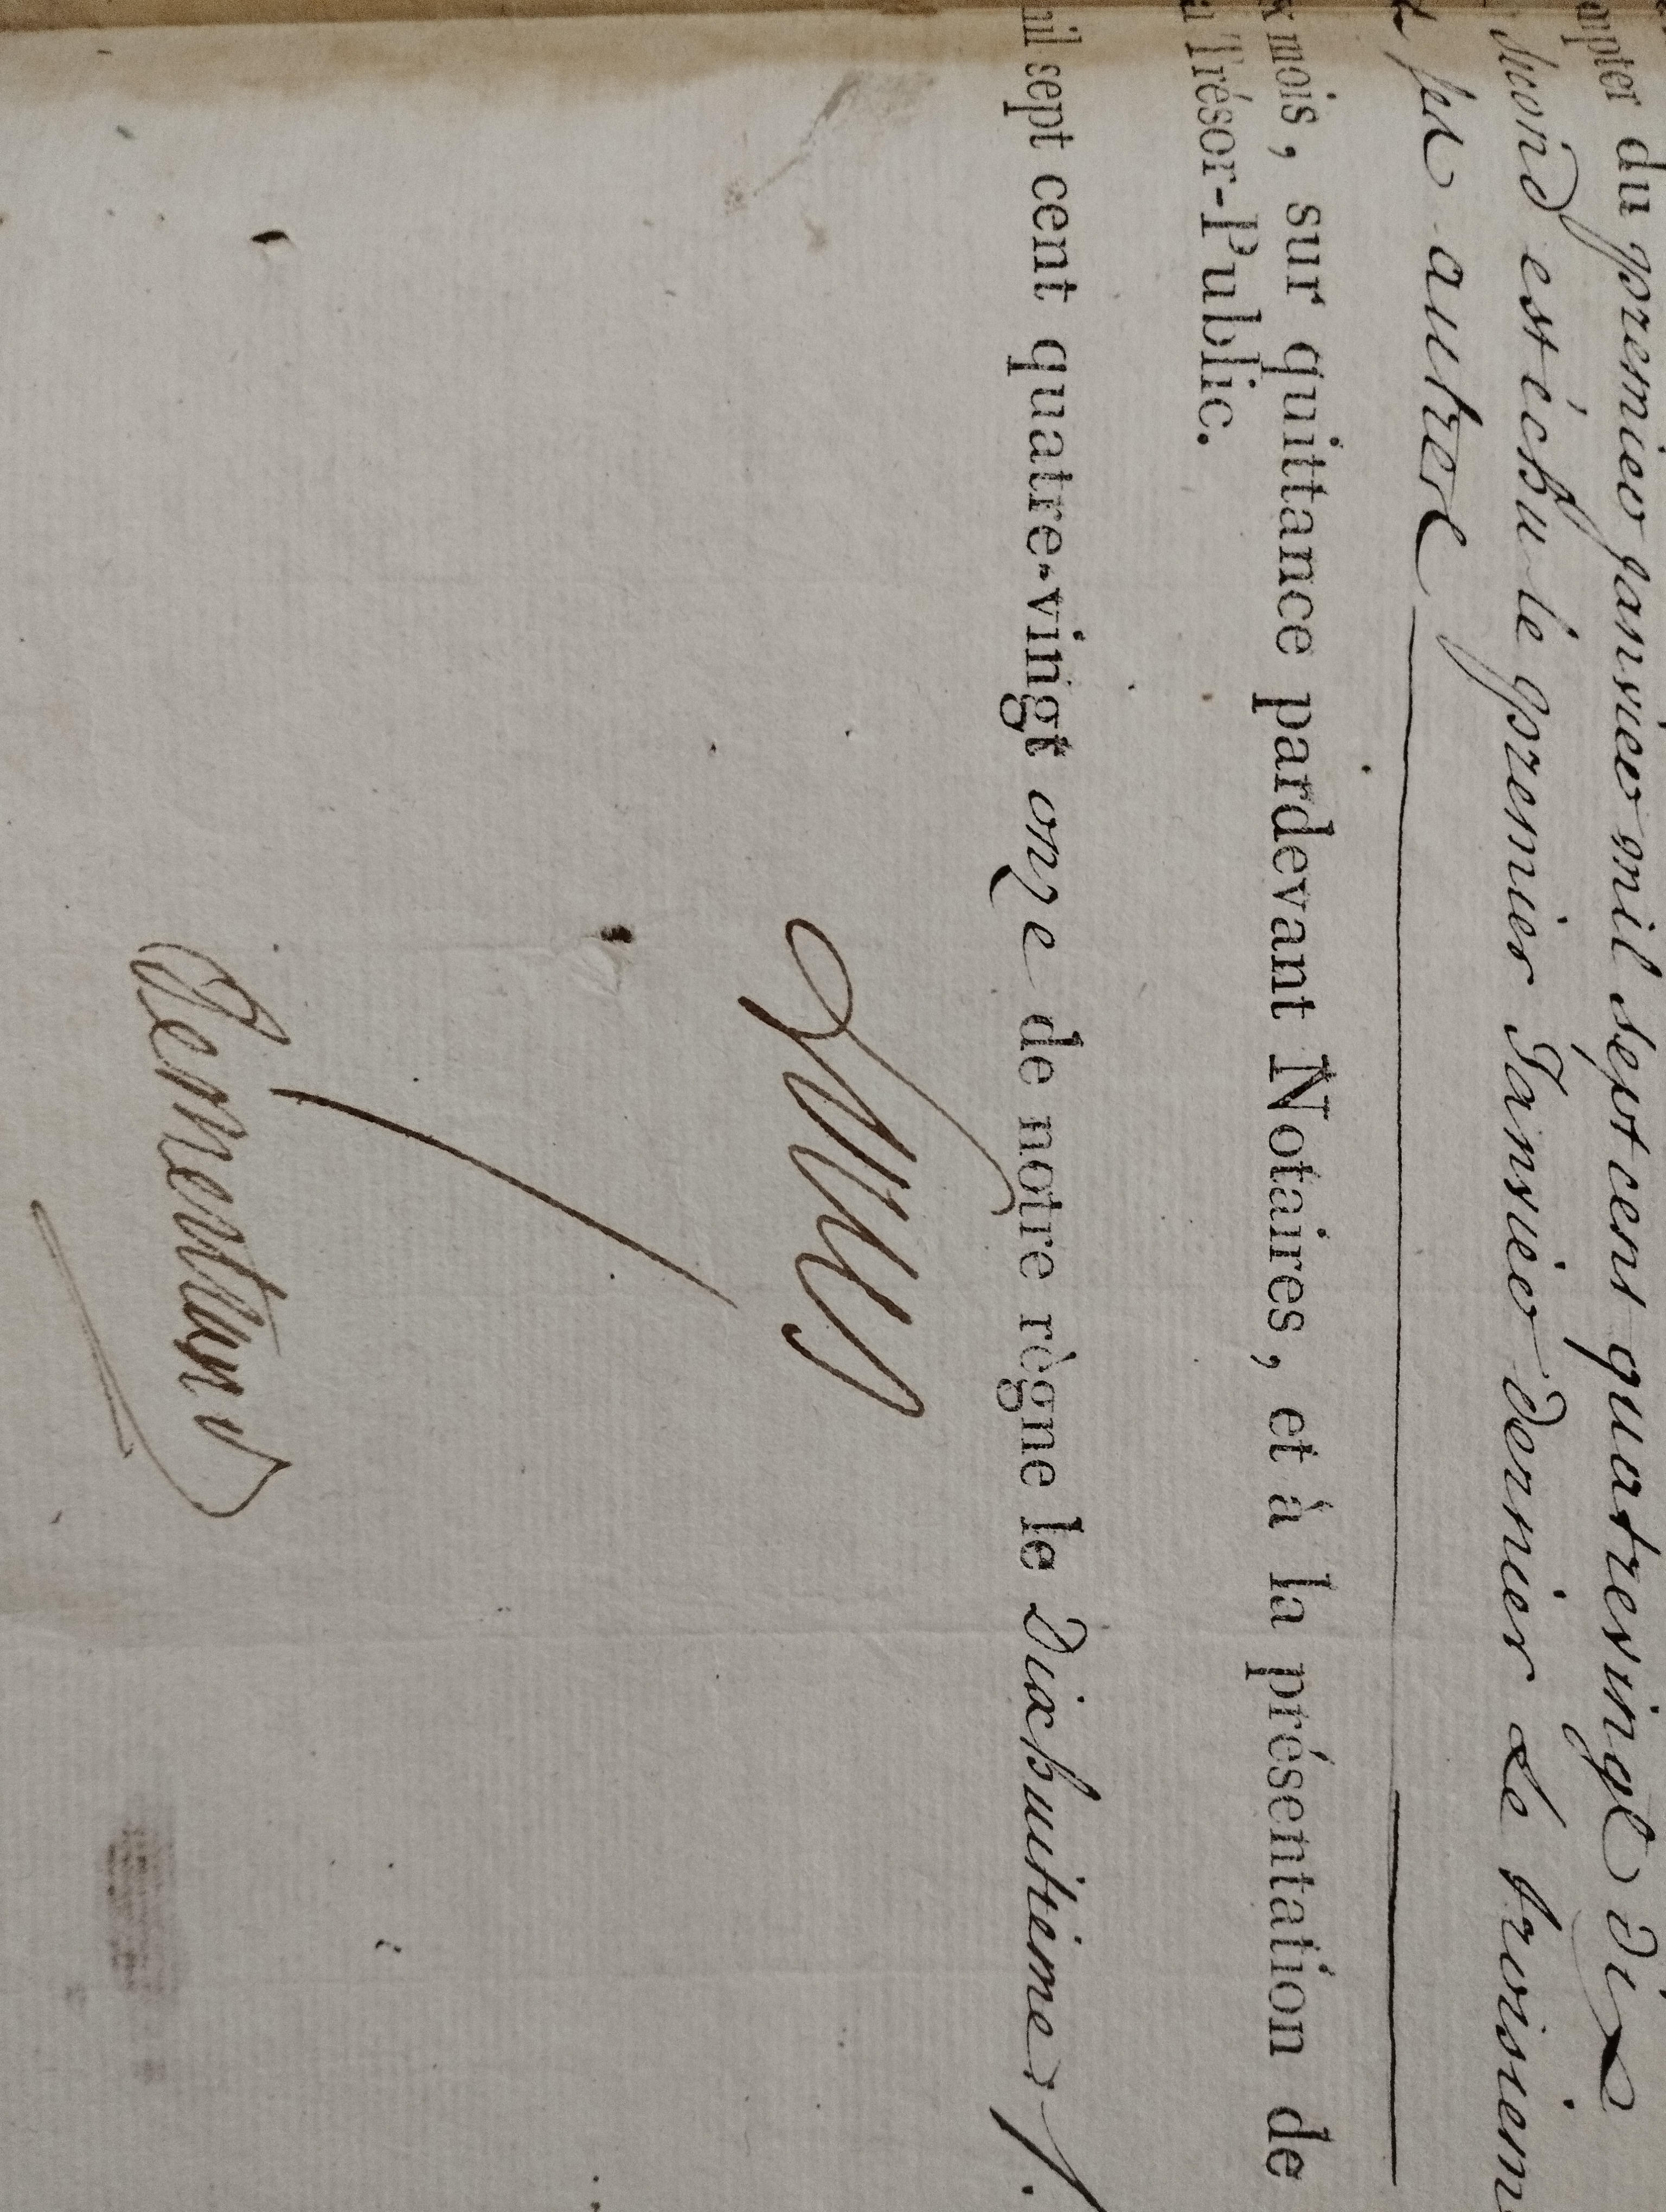 mpter du premier janvier mil sept cent quatrevingt dix
second est échu le premier Janvier dernier Le troisiem
ses autres
x mois, sur quittance pardevant Notaires, et à la présentation de
u Trésor-Public.
mil sept cent quatre-vingt onze de notre règne le Dixhuitieme ./.
Louis